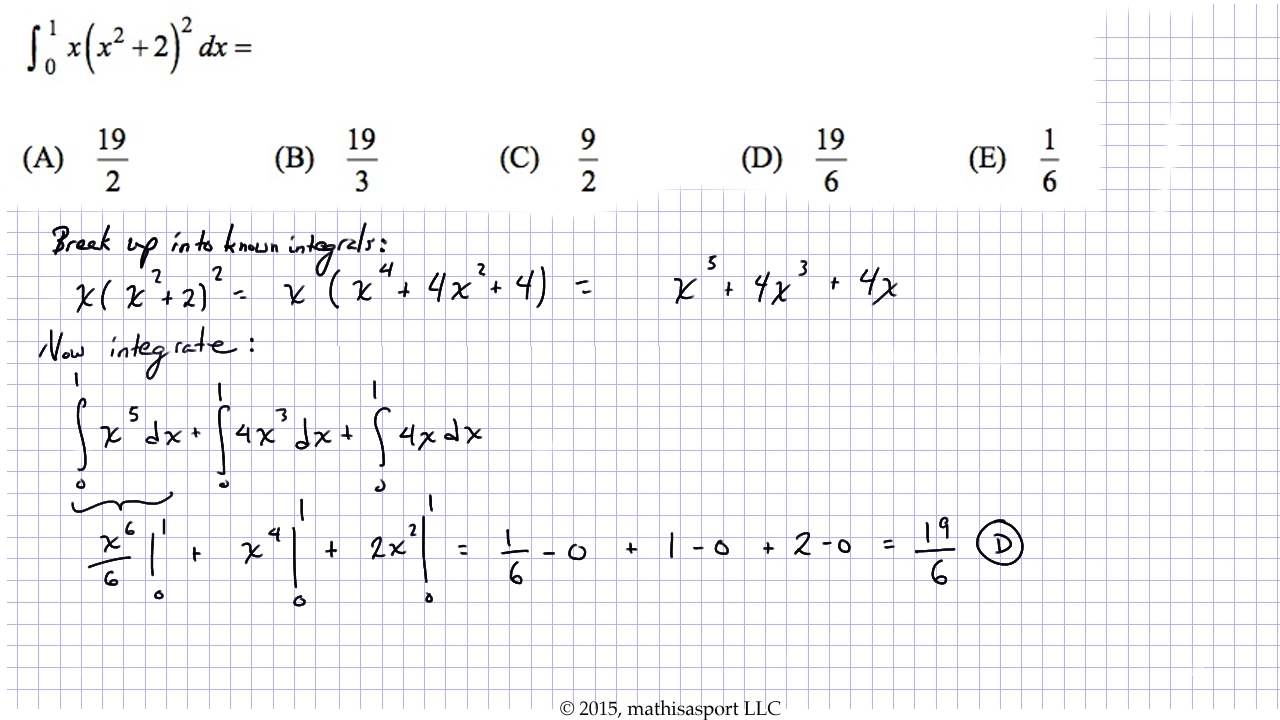 ∫₀¹ x(x² + 2)² dx =
(A) 19/2 (B) 19/3 (C) 9/2 (D) 19/6 (E) 1/6
Break up into known integrals:
x(x² + 2)² = x(x⁴ + 4x² + 4) = x⁵ + 4x³ + 4x
Now integrate:
∫₀¹ x⁵ dx + ∫₀¹ 4x³ dx + ∫₀¹ 4x dx
x⁶/6 |₀¹ + x⁴ |₀¹ + 2x² |₀¹ = 1/6 - 0 + 1 - 0 + 2 - 0 = 19/6 D
© 2015, mathisasport LLC